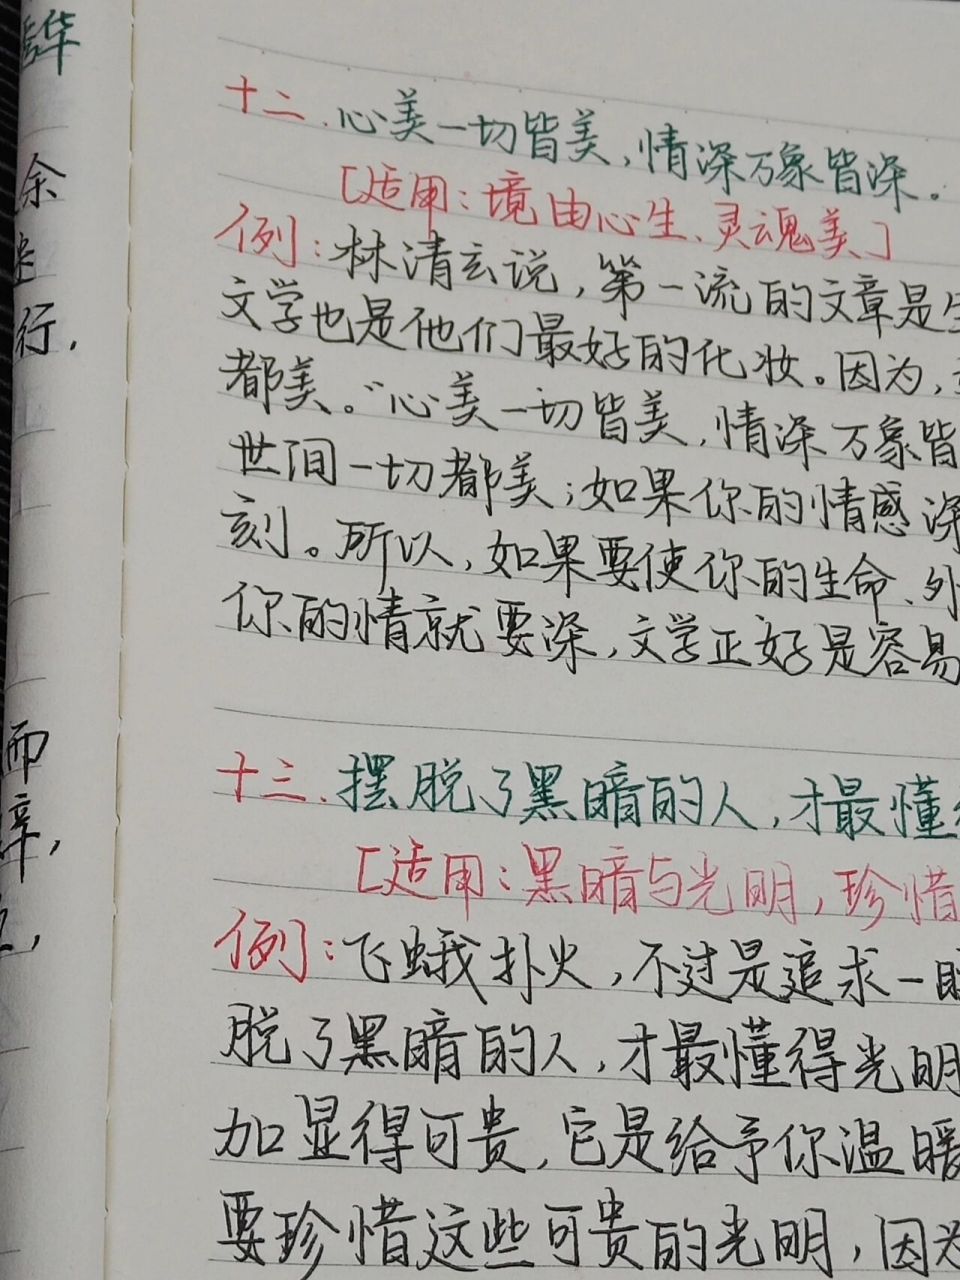 华
余
行.
而
辛,
十二.心美一切皆美,情深万象皆深.
[适用:境由心生、灵魂美]
例:林清玄说,第一流的文章是生
文学也是他们最好的化妆。因为,
都美。“心美一切皆美,情深万象皆
世间一切都美;如果你的情感深
刻。所以,如果要使你的生命、外
你的情就要深,文学正好是容易
十三.摆脱了黑暗的人,才最懂
[适用:黑暗与光明,珍惜
例:飞蛾扑火,不过是追求一
脱了黑暗的人,才最懂得光明
加显得可贵,它是给予你温暖
要珍惜这些可贵的光明,因为